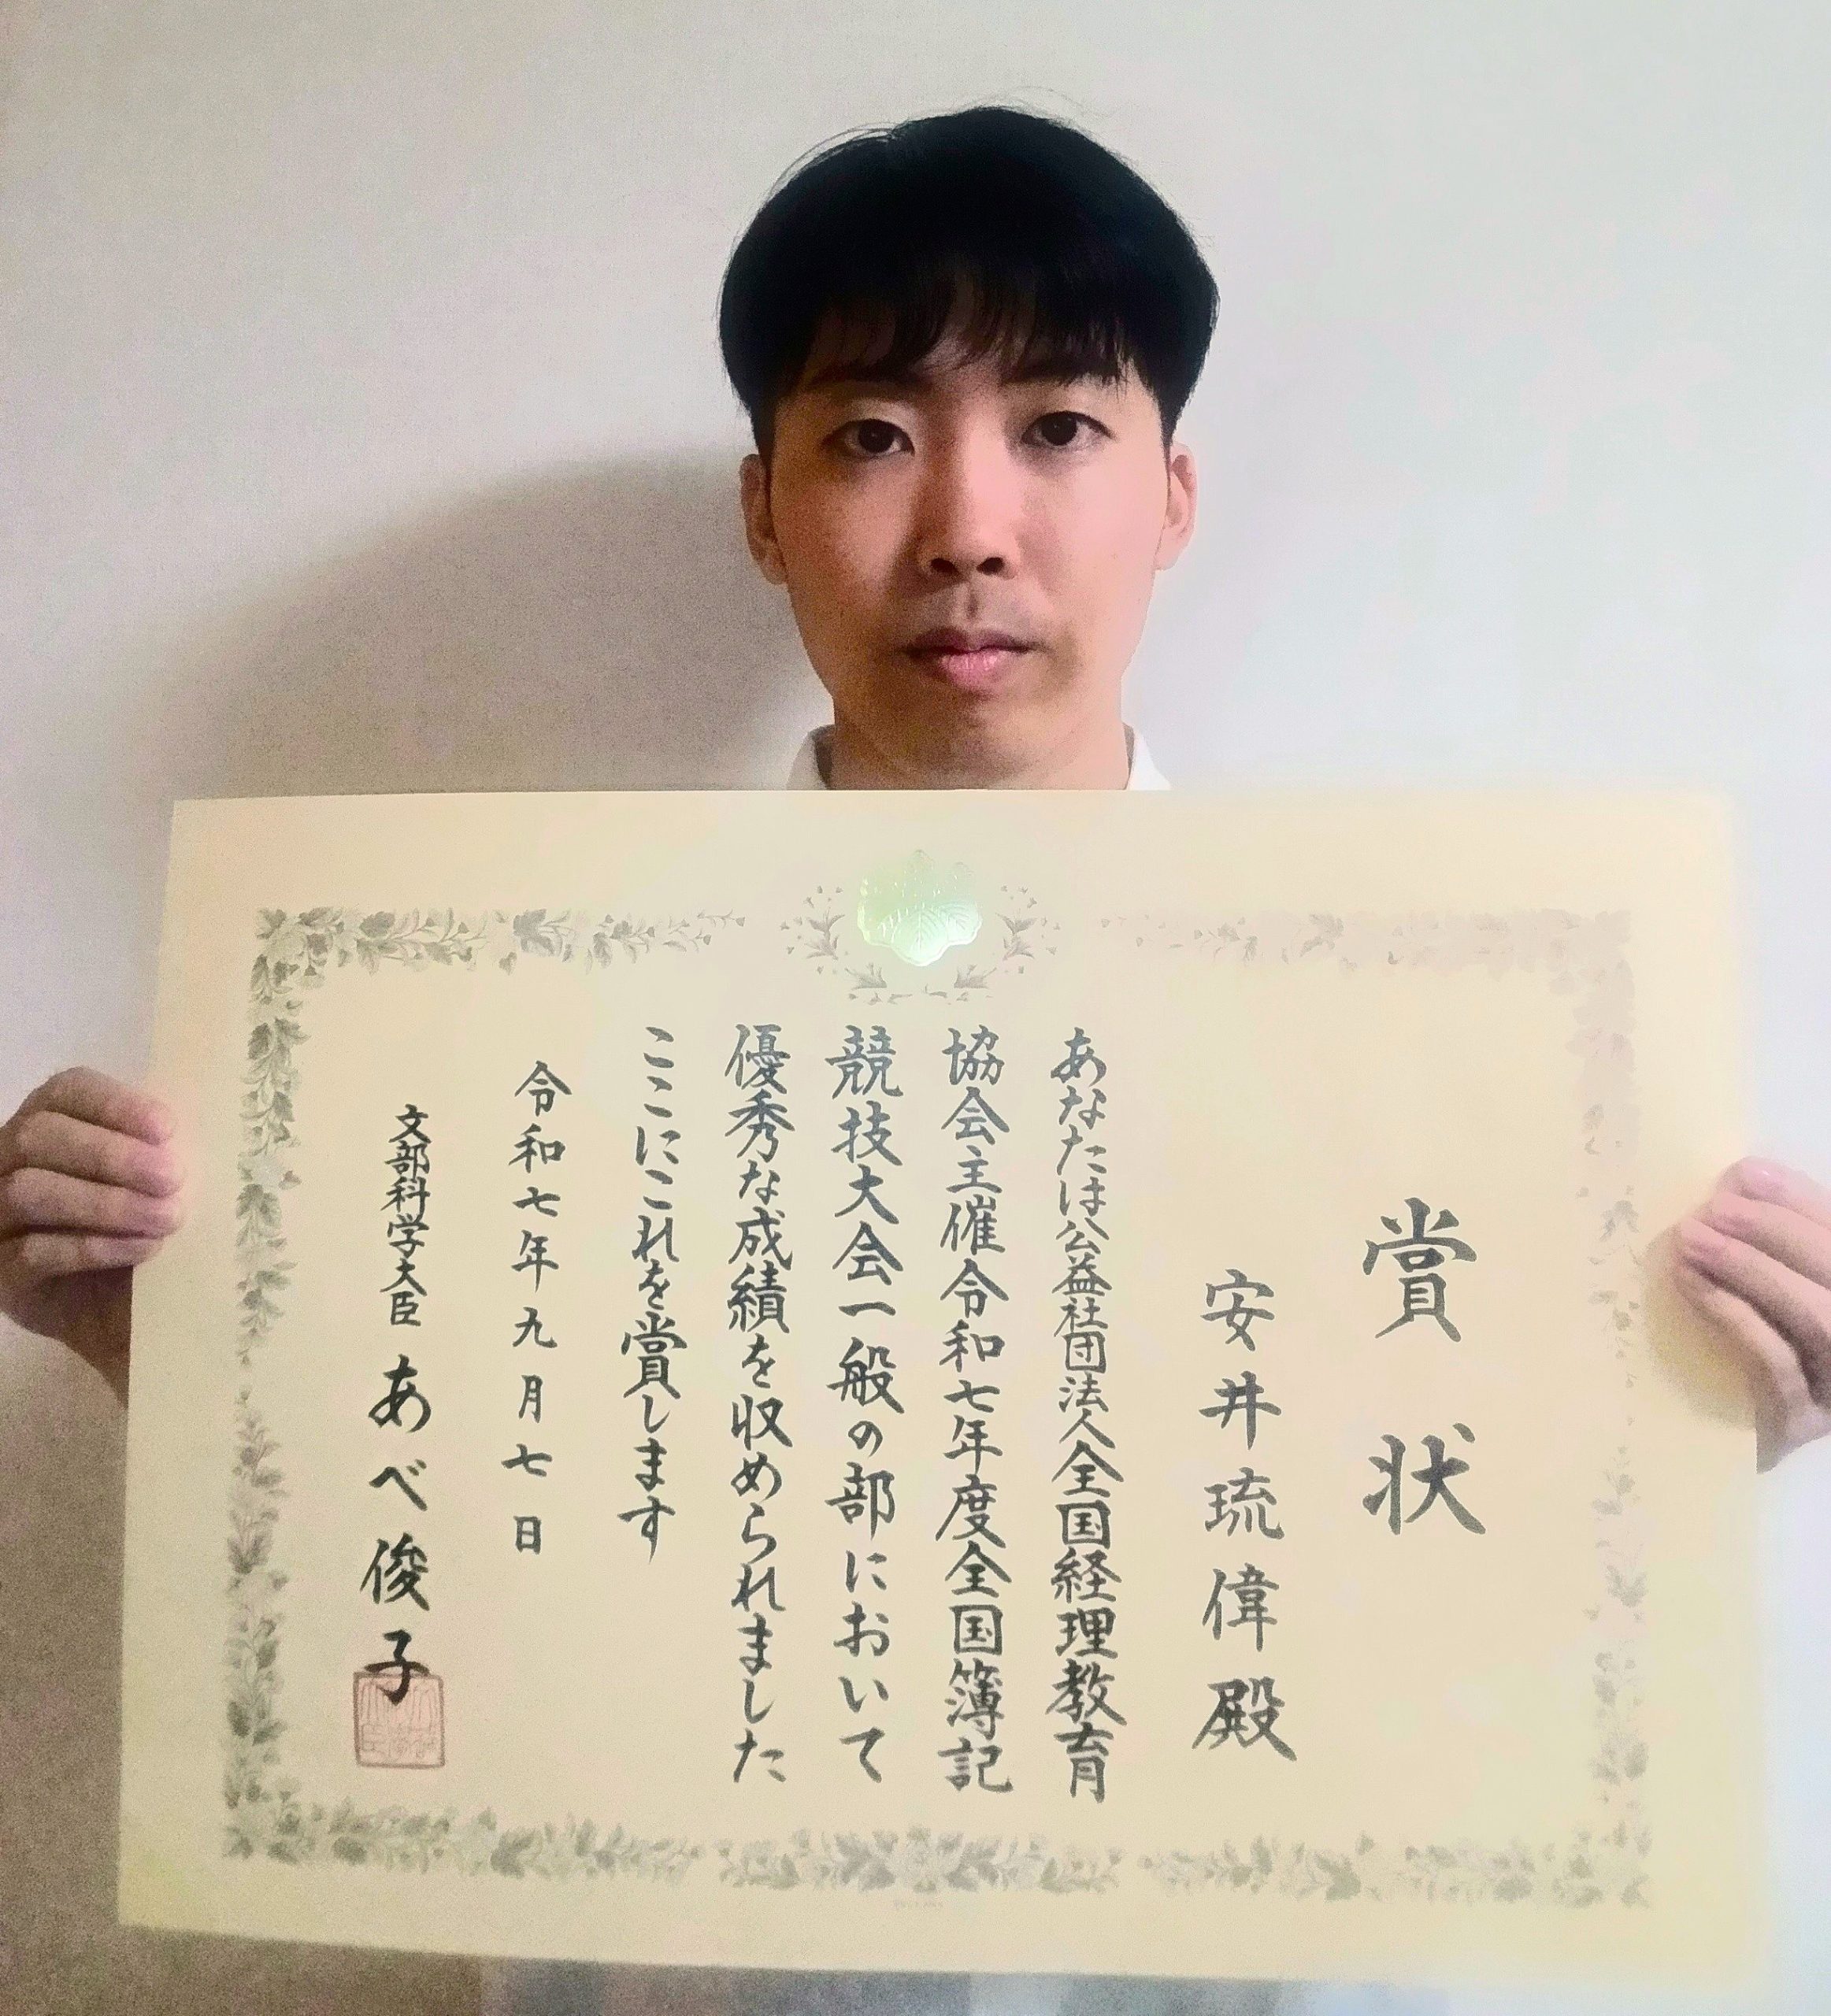 賞状
安井琉偉殿
あなたは公益社団法人全国経理教育
協会主催令和七年度全国簿記
競技大会一般の部において
優秀な成績を収められました
ここにこれを賞します
令和七年九月七日
文部科学大臣 あべ俊子